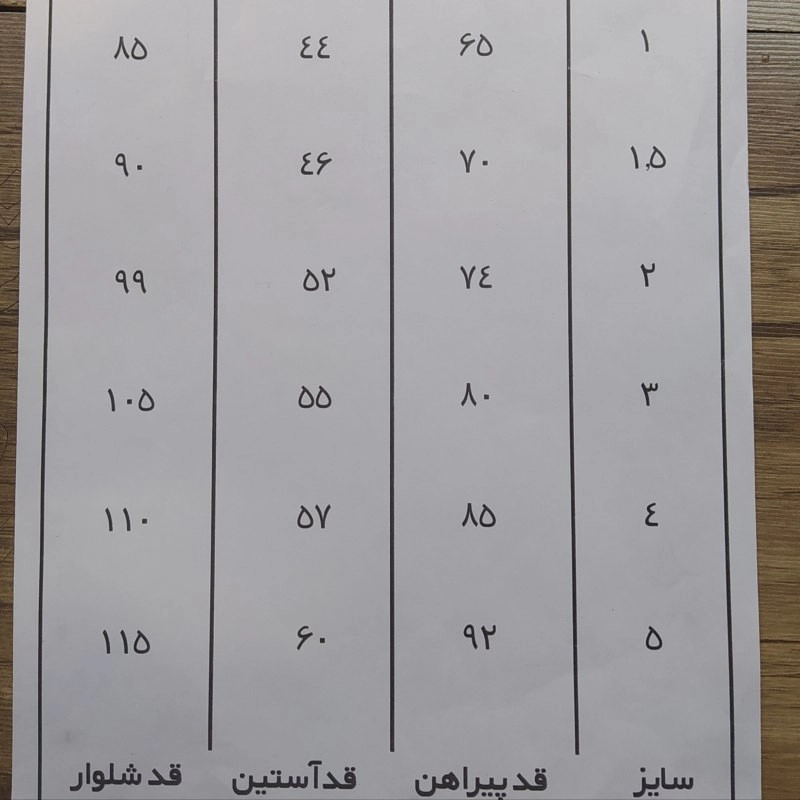 ۱ ۶۵ ٤٤ ۸۵
۱,۵ ۷۰ ٤۶ ۹۰
۲ ۷٤ ۵۲ ۹۹
۳ ۸۰ ۵۵ ۱۰۵
٤ ۸۵ ۵۷ ۱۱۰
۵ ۹۲ ۶۰ ۱۱۵
سایز قد پیراهن قد آستین قد شلوار